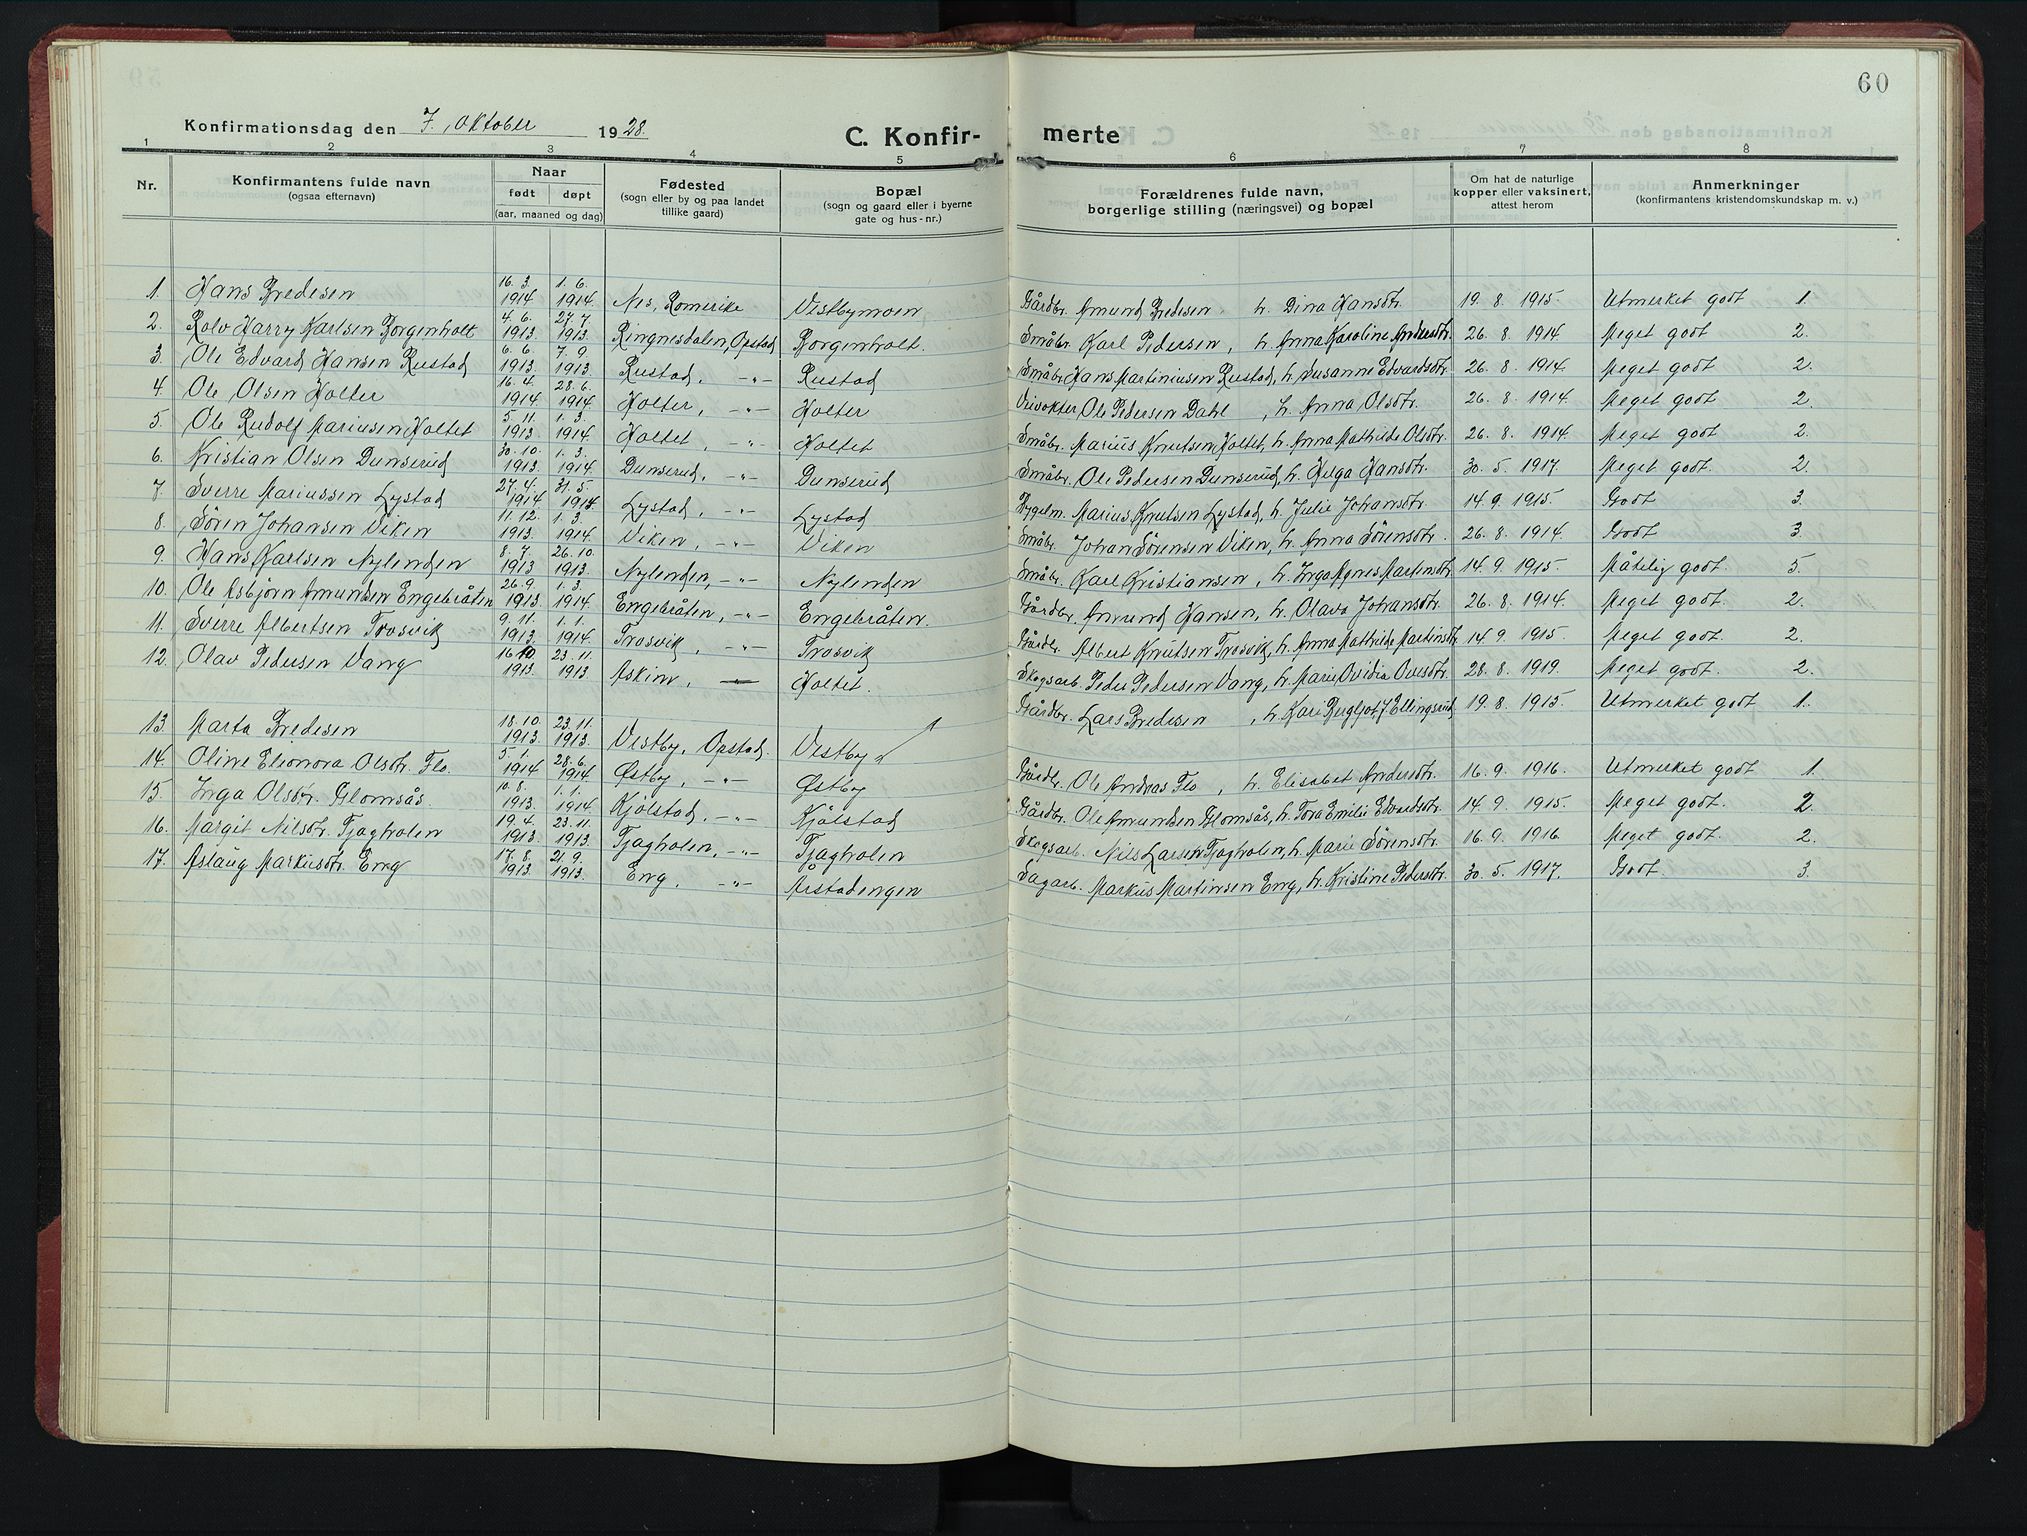 60
Konfirmationsdag den 7. oktober 1928.
C. Konfir- merte
1 2 3 4 5 6 7 8
Nr.
Konfirmantens fulde navn
(ogsaa efternavn)
Naar
født døpt
(aar, maaned og dag)
Fødested
(sogn eller by og paa landet
tillike gaard)
Bopæl
(sogn og gaard eller i byerne
gate og hus-nr.)
Forældrenes fulde navn,
borgerlige stilling (næringsvei) og bopæl
Om hat de naturlige
kopper eller vaksinert,
attest herom
Anmerkninger
(konfirmantens kristendomskundskap m. v.)
1. Hans Bredesen 16.3. 1914 1.6. 1914. Nes, Romerike Vestbymoen Gårdbr. Amund Bredesen h. Dina Hansdtr. 19. 8. 1915. Utmerket godt 1.
2. Rolv Harry Karlsen Borgenholt 4.6. 1913. 27.7. 1913. Ringnesdalen, Opstad Borgenholt. Småbr. Karl Pedersen, h. Anna Karoline Andersdtr. 26. 8. 1914. Meget godt 2.
3. Ole Edvard Hansen Rustad 6.6. 1913. 7.9. 1913. Rustad, -"- Rustad Småbr. Hans Martiniusen Rustad, h. Susanne Edvardsdtr. 26. 8. 1914. Meget godt 2.
4. Ole Olsen Holter 16.4. 1914 28.6. 1914. Holter, -"- Holter Ole Pedersen Dahl, h. Anna Olsdtr. 26. 8. 1914. Meget godt 2.
5. Ole Rudolf Mariusen Holtet 5.11. 1913. 1.3. 1914 Holtet, -"- Holtet Småbr. Marius Knutsen Holtet, h. Anna Mathilde Olsdtr. 26. 8. 1914. Meget godt 2.
6. Kristian Olsen Dunserud 30.10. 1913. 1.3. 1914. Dunserud, -"- Dunserud Småbr. Ole Pedersen Dunserud, h. Helga Hansdtr. 30. 5. 1917. Meget godt. 2.
7. Sverre Mariussen Lystad 27.4. 1914 31.5. 1914. Lystad, -"- Lystad Bygelm. Marius Knutsen Lystad, h. Julie Johansdtr. 14. 9. 1915. Godt 3.
8. Sören Johansen Viken 11.12. 1913. 1.3. 1914. Viken, -"- Viken Småbr. Johan Sörensen Viken, h. Anna Sörensdtr. 26. 8. 1914. Godt 3.
9. Hans Karlsen Nylenden 8.7. 1913 26.10. 1913. Nylenden, -"- Nylenden Småbr. Karl Kristiansen, h. Inga Agnes Martinsdtr. 14. 9. 1915. Måtelig godt. 5.
10. Ole Asbjörn Amundsen Engebråten 26.9. 1913. 1.3. 1914. Engebråten, -"- Engebråten. Gårdbr. Amund Hansen, h. Olava Johansdtr. 26. 8. 1914. Meget godt. 2.
11. Sverre Albertsen Trosvik 9.11. 1913. 1.1. 1914. Trosvik, -"- Trosvik Gårdbr. Albert Knutsen Trosvik, h. Anna Mathilde Martinsdtr. 14. 9. 1915. Meget godt. 2.
12. Olav Pedersen Vang 16.10 1913. 23.11. 1913. Askim, Holtet. Skogsarb. Peder Pedersen Vang, h. Marie Ovidia Ovesdtr. 28. 8. 1919. Meget godt. 2.
13. Marta Bredesen 18.10. 1913. 23.11. 1913. Vestby, Opstad. Vestby Gårdbr. Lars Bredesen, h. Kari Bergljot J. Ellingsrud 19. 8. 1915. Utmerket godt 1.
14. Oline Elionora Olsdtr. Flo. 5.1. 1914 28.6. 1914 Østby, -"- Østby Gårdbr. Ole Andreas Flo, h. Elisabet Andersdtr. 16. 9. 1916. Utmerket godt 1.
15. Inga Olsdtr. Glomsås. 10.8. 1913. 1.1. 1914 Kjölstad, -"- Kjölstad Gårdbr. Ole Amundsen Glomsås, h. Tora Emilie Edvardsdtr. 14. 9. 1915. Meget godt. 2.
16. Margit Nilsdtr. Tjagholen 19.4. 1913. 23.11. 1913. Tjagholen, -"- Tjagholen Skogsarb. Nils Larsen Tjagholen, h. Marie Sörensdtr. 16. 9. 1916 Meget godt. 2.
17. Aslaug Markusdtr. Eng 17.8. 1913. 21.9. 1913. Eng, -"- Årstadengen Sagarb. Markus Martinsen Eng, h. Kristine Pedersdtr. 30. 5. 1917. Godt. 3.